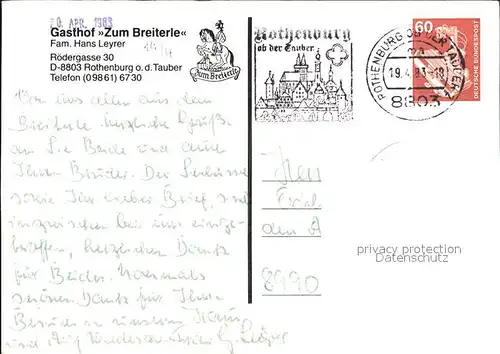 20. APR. 1983
Gasthof »Zum Breiterle«
Fam. Hans Leyrer
Rödergasse 30
D-8803 Rothenburg o.d.Tauber
Telefon (09861) 6730
Zum Breiterle
Rothenburg
ob der Tauber
ROTHENBURG OB DER TAUBER
19.4.83-18
8803
60
DEUTSCHE BUNDESPOST
Von uns allen aus dem
Breiterle herzliche Grüße
an Sie Beide und auch
Ihren Bruder. Der
sowie Ihr lieber Brief, sind
inzwischen bei uns einge-
troffen, herzlichen Dank
für Beides. Nochmals
Dank für Ihren
Besuch in unserem Haus
und Auf Wiedersehen
Herr
den A
8990
privacy protection
Datenschutz